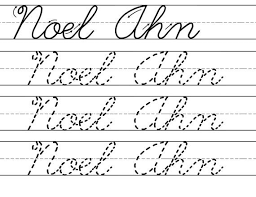 Noel Ahn
Noel Ahn
Noel Ahn
Noel Ahn